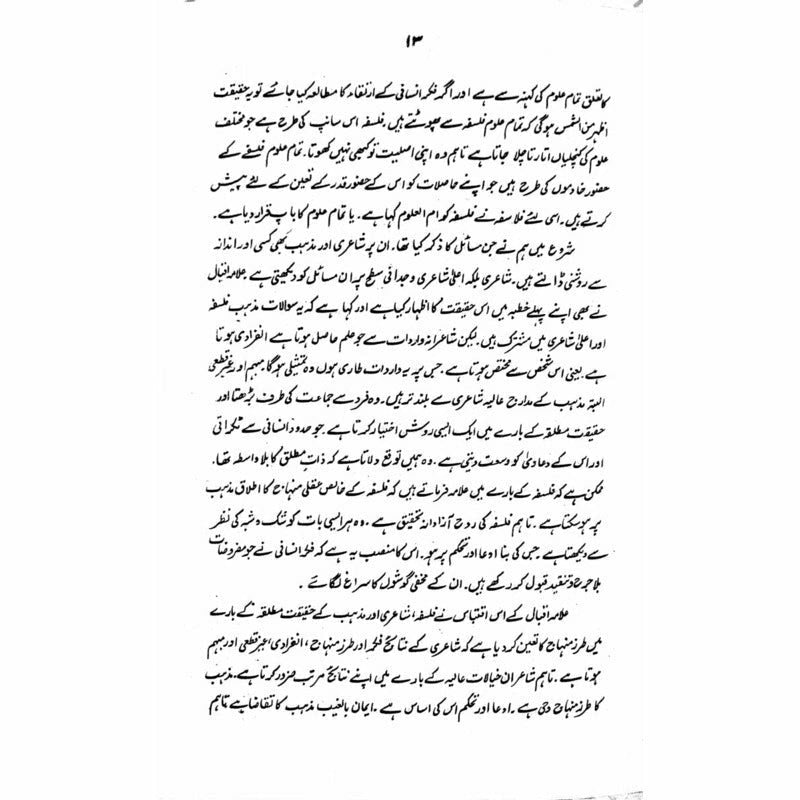 ۱۳
کا تعلق تمام علوم کی کہنہ سے ہے اور اگر فکر انسانی کے ارتقاء کا مطالعہ کیا جائے تو یہ حقیقت
اظہر من الشمس ہوگی کہ تمام علوم فلسفہ سے پھوٹتے ہیں۔ فلسفہ اس سانپ کی طرح ہے جو مختلف
علوم کی کنچلیاں اتارتا چلا جاتا ہے تاہم وہ اپنی اصلیت تو کبھی نہیں کھوتا۔ تمام علوم فلسفے کے
حضور خادموں کی طرح ہیں جو اپنے حاصلات کو اس کے حضور قدر کے تعین کے لئے پیش
کرتے ہیں۔ اسی لئے فلاسفہ نے فلسفہ کو ام العلوم کہا ہے۔ یا تمام علوم کا باپ قرار دیا ہے۔
شروع میں ہم نے جن مسائل کا ذکر کیا تھا۔ ان پر شاعری اور مذہب بھی کسی اور انداز
سے روشنی ڈالتے ہیں۔ شاعری بلکہ اعلیٰ شاعری وجدانی سطح پر ان مسائل کو دیکھتی ہے علامہ اقبال
نے بھی اپنے پہلے خطبہ میں اس حقیقت کا اظہار کیا ہے اور کہا ہے کہ یہ سوالات مذہب فلسفہ
اور اعلیٰ شاعری میں مشترک ہیں۔ لیکن شاعرانہ واردات سے جو علم حاصل ہوتا ہے انفرادی ہوتا
ہے یعنی اس شخص سے مختص ہوتا ہے۔ جس پر یہ واردات طاری ہوں وہ تمثیلی ہوگا مبہم اور غیر قطعی
البتہ مذہب کے مدارج عالیہ شاعری سے بلند تر ہیں۔ وہ فرد سے جماعت کی طرف بڑھتا اور
حقیقت مطلقہ کے بارے میں ایک ایسی روش اختیار کرتا ہے۔ جو حدود انسانی سے ٹکراتی
اور اس کے دعاویٰ کو وسعت دیتی ہے۔ وہ ہمیں توقع دلاتا ہے کہ ذات مطلق کا بلا واسطہ تھا۔
ممکن ہے کہ فلسفہ کے بارے میں علامہ فرماتے ہیں کہ فلسفہ کے خالص عقلی منہاج کا اطلاق مذہب
پر ہو سکتا ہے۔ تاہم فلسفہ کی روح آزادانہ تحقیق ہے۔ وہ ہر ایسی بات کو شک و شبہ کی نظر
سے دیکھتا ہے۔ جس کی بنا ادعا اور تحکم پر ہو۔ اس کا منصب یہ ہے کہ فکر انسانی نے جو مفروضات
بلا جرح و تنقید قبول کر رکھے ہیں۔ ان کے مخفی گوشوں کا سراغ لگائے۔
علامہ اقبال کے اس اقتباس نے فلسفہ، شاعری اور مذہب کے حقیقت مطلقہ کے بارے
میں طرز منہاج کا تعین کر دیا ہے کہ شاعری کے نتائج فکر اور طرز منہاج، انفرادی، غیر قطعی اور مبہم
ہوتا ہے۔ تاہم شاعر ان خیالات عالیہ کے بارے میں اپنے نتائج مرتب ضرور کرتا ہے۔ مذہب
کا طرز منہاج وحی ہے۔ ادعا اور تحکم اس کی اساس ہے۔ ایمان بالغیب مذہب کا تقاضا ہے تاہم